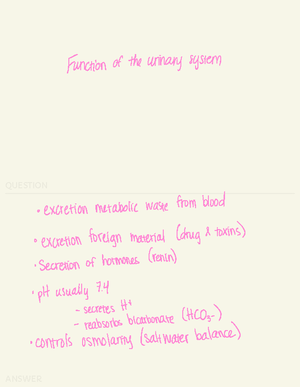 Function of the urinary system
QUESTION
• excretion metabolic waste from blood
• excretion foreign material (drug & toxins)
• Secretion of hormones (renin)
• pH usually 7.4
- secretes H+
- reabsorbs bicarbonate (HCO3-)
• controls osmolarity (salt water balance)
ANSWER